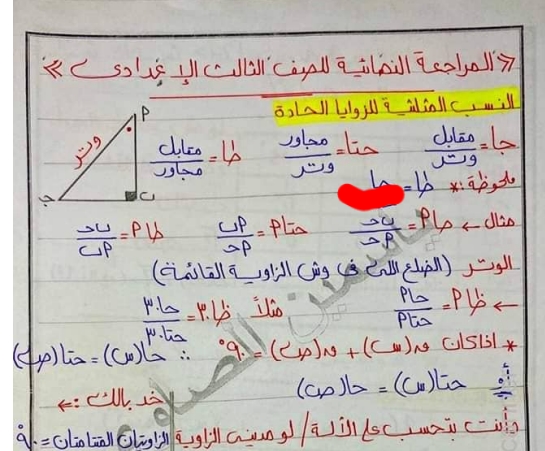 « المراجعة النهائية للصف الثالث الإعدادى »
النسب المثلثية للزوايا الحادة
جا = مقابل/وتر حتا = مجاور/وتر ظا = مقابل/مجاور
وتر
م
ب
جـ
ملحوظة :* ظا =
مثال ← حام = ب حـ/م حـ حتام = م ب/م حـ ظام = ب حـ/م ب
الوتر (الضلع اللى فى وش الزاوية القائمة)
← ظام = حام/حتام مثلاً ظا٣٠ = حا٣٠/حتا٣٠
* اذا كان ق(س) + ق(ص) = ٩٠° ∴ حا(س) = حتا(ص)
أو حتا(س) = حا(ص) خد بالك :←
وأنت بتحسب على الألة / لو مدينى الزاوية الزاويتان المتتامتان = ٩٠°
ياسمين الصاوى